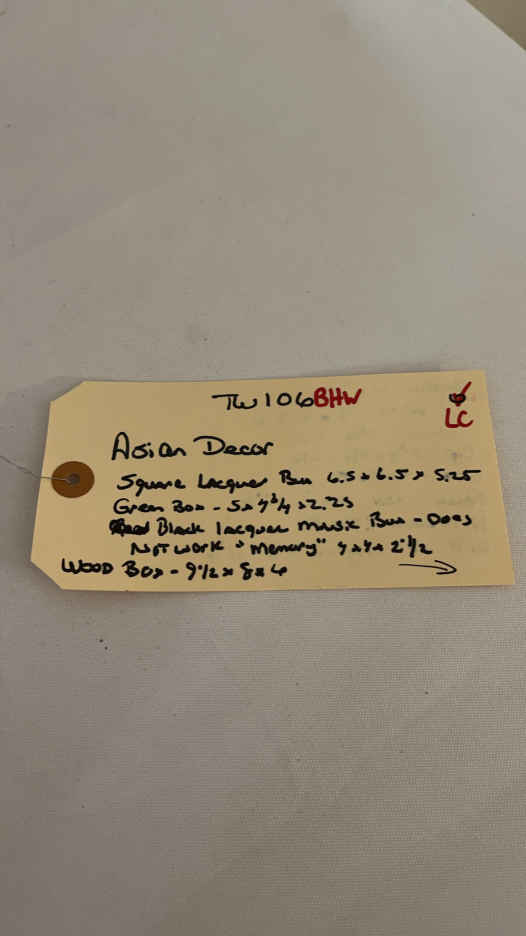 TW106BHW
LC
Asian Decor
Square Lacquer Box 6.5 x 6.5 x 5.25
Green Box - 5 x 4 3/4 x 2.25
Black lacquer music Box - Does
Not work "Memory" 4 x 4 x 2 1/2
WOOD Box - 9 1/2 x 8 x 6